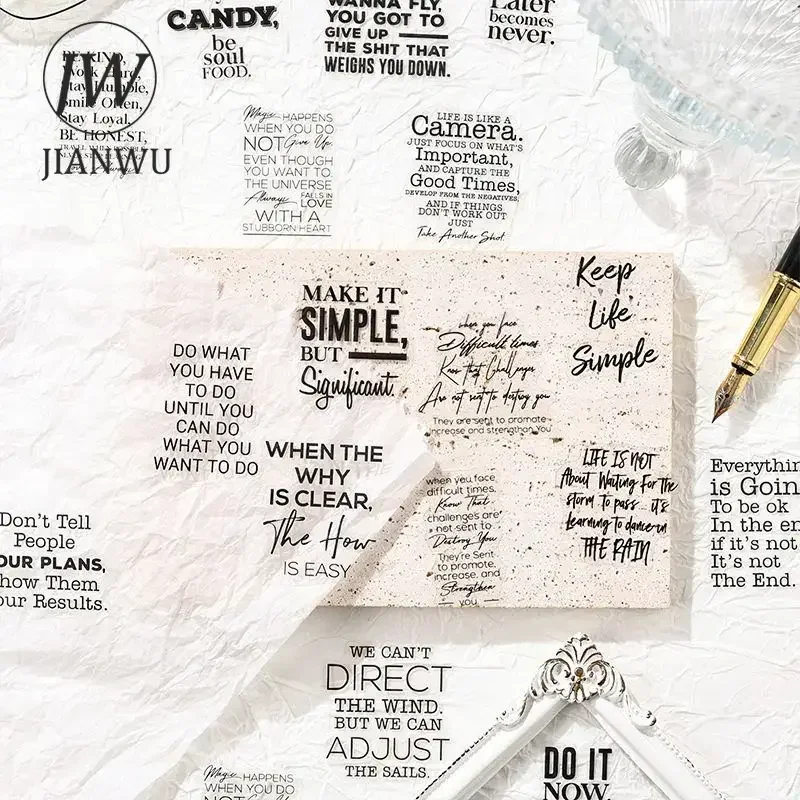 CANDY,
be
soul
FOOD.
WANNA FLY,
YOU GOT TO
GIVE UP
THE SHIT THAT
WEIGHS YOU DOWN.
Later
becomes
never.
BE KIND,
Work Hard,
Stay Humble,
Smile Often,
Stay Loyal,
BE HONEST,
JW
JIANWU
Magic HAPPENS
WHEN YOU DO
NOT Give Up,
EVEN THOUGH
YOU WANT TO.
THE UNIVERSE
Always FALLS IN
LOVE
WITH A
STUBBORN HEART
LIFE IS LIKE A
Camera.
JUST FOCUS ON WHAT'S
Important,
AND CAPTURE THE
Good Times,
DEVELOP FROM THE NEGATIVES,
AND IF THINGS
DON'T WORK OUT
JUST
Take Another Shot.
DO WHAT
YOU HAVE
TO DO
UNTIL YOU
CAN DO
WHAT YOU
WANT TO DO
MAKE IT
SIMPLE,
BUT
Significant.
when you face
Difficult times
Know that Challenges
Are not sent to destroy you
They are sent to promote
increase and strengthan You
Keep
Life
Simple
WHEN THE
WHY
IS CLEAR,
The How
IS EASY
when you face
difficult times,
Know That
challenges are
not sent to
Destroy You
They're Sent
to promote,
increase, and
Strengthen
you
LIFE IS NOT
About Waiting For The
storm to pass it's
learning to dance in
THE RAIN
Everything
is Goin
To be ok
In the en
if it's not
It's not
The End.
Don't Tell
People
OUR PLANS,
how Them
our Results.
WE CAN'T
DIRECT
THE WIND.
BUT WE CAN
ADJUST
THE SAILS.
Magic HAPPENS
WHEN YOU DO
NOT Give Up,
DO IT
NOW.